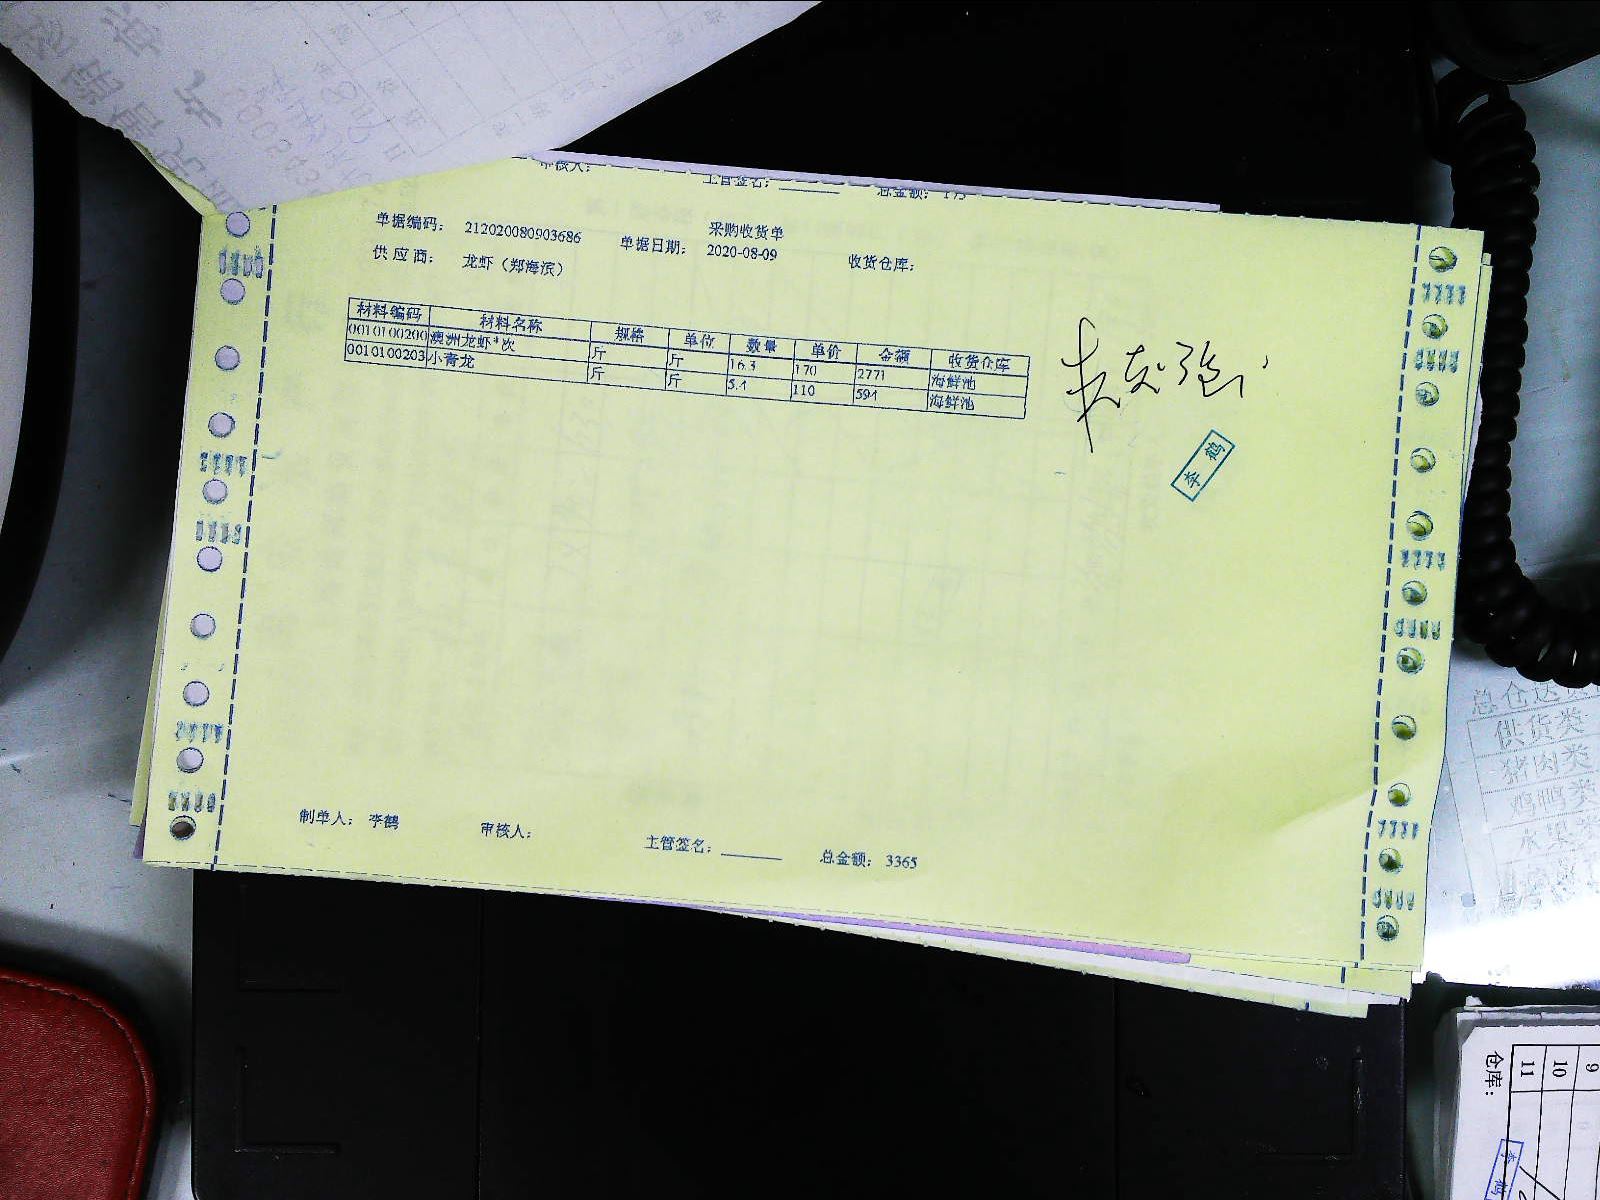 审核人:
主管签名: 总金额: 175
采购收货单
单据编码: 212020080903686 单据日期: 2020-08-09 收货仓库:
供应商: 龙虾（郑海滨）
材料编码 材料名称 规格 单位 数量 单价 金额 收货仓库
0010100200 澳洲龙虾*次 斤 斤 16.3 170 2771 海鲜池
0010100203 小青龙 斤 斤 5.4 110 594 海鲜池
李鹤
制单人: 李鹤 审核人: 主管签名: 总金额: 3365
供货类
猪肉类
鸡鸭类
水果类
仓库:
11
10
9